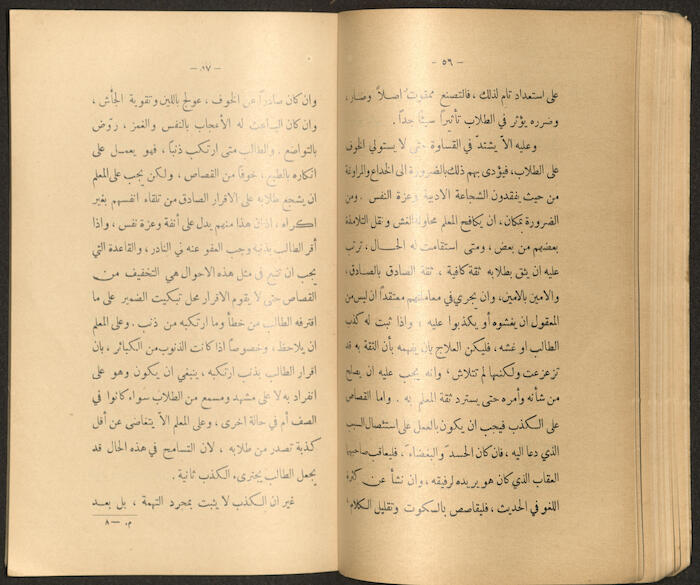 — ٥٦ —
على استعداد تام لذلك ، فالتصنع ممقوت اصلاً وضار ،
وضرره يؤثر في الطلاب تأثيراً سيئاً جداً .
وعليه الاّ يشتدّ في القساوة حتى لا يستولي الخوف
على الطلاب ، فيؤدي بهم ذلك بالضرورة الى الخداع والمراوغة
من حيث يفقدون الشجاعة الادبية وعزة النفس . ومن
الضرورة بمكان ، ان يكافح المعلم محاولة الغش ونقل التلامذة
بعضهم من بعض ، ومتى استقامت له الحال ، ترتب
عليه ان يثق بطلابه ثقة كافية ، ثقة الصادق بالصادق ،
والامين بالامين ، وان يجري في معاملتهم معتقداً ان ليس من
المعقول ان يغشوه أو يكذبوا عليه ، واذا ثبت له كذب
الطالب او غشه ، فليكن العلاج بان يفهمه بأن الثقة به قد
تزعزعت ولكنها لم تتلاش ، وانه يجب عليه ان يصلح
من شأنه وأمره حتى يسترد ثقة المعلم به . واما القصاص
على الكذب فيجب ان يكون بالعمل على استئصال السبب
الذي دعا اليه ، فان كان الحسد والبغضاء ، فليعاقب صاحبها
العقاب الذي كان هو يريده لرفيقه ، وان نشأ عن كثرة
اللغو في الحديث ، فليقاصص بالسكوت وتقليل الكلام ،
— ٥٧ —
وان كان صادراً عن الخوف ، عولج باللين وتقوية الجأش ،
وان كان الباعث له الأعجاب بالنفس والغمز ، روّض
بالتواضع . والطالب متى ارتكب ذنباً ، فهو يعمل على
انكاره بالطبع ، خوفاً من القصاص ، ولكن يجب على المعلم
ان يشجع طلابه على الاقرار الصادق من تلقاء انفسهم بغير
اكراه ، اذ ان هذا منهم يدل على أنفة وعزة نفس ، واذا
أقر الطالب بذنبه وجب العفو عنه في النادر ، والقاعدة التي
يجب ان تتبع في مثل هذه الاحوال هي التخفيف من
القصاص حتى لا يقوم الاقرار محل تبكيت الضمير على ما
اقترفه الطالب من خطأ وما ارتكبه من ذنب . وعلى المعلم
ان يلاحظ ، وخصوصاً اذا كانت الذنوب من الكبائر ، بان
اقرار الطالب بذنب ارتكبه ، ينبغي ان يكون وهو على
انفراد به لا على مشهد ومسمع من الطلاب سواء كانوا في
الصف أم في حالة اخرى ، وعلى المعلم الاّ يتغاضى عن أقل
كذبة تصدر من طلابه ، لان التسامح في هذه الحال قد
يجعل الطالب يجترىء الكذب ثانية .
غير ان الكذب لا يثبت بمجرد التهمة ، بل بعد
م. — ٨